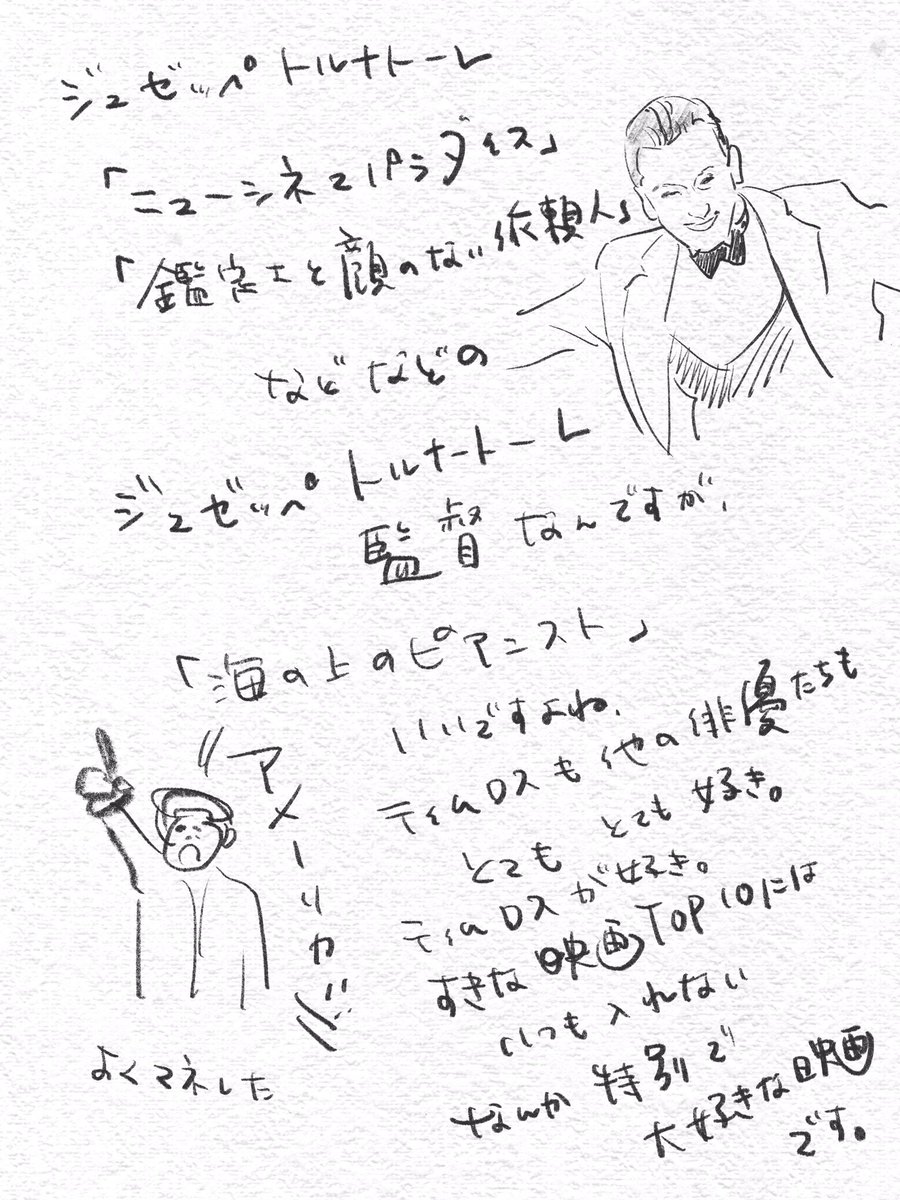 ジュゼッペトルナトーレ
「ニューシネマパラダイス」
「鑑定士と顔のない依頼人」
などなどの
ジュゼッペトルナートーレ
監督なんですが、
「海の上のピアニスト」
いいですよね、
ティムロスも他の俳優たちも
とてもとても好き。
ティムロスが好き。
すきな映画TOP10には
いつも入れない
なんか特別で
大好きな映画
です。
アメーリカ
よくマネした